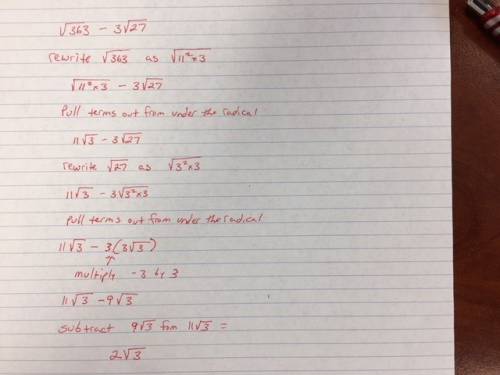 √363 - 3√27
rewrite √363 as √11²×3
√11²×3 - 3√27
Pull terms out from under the radical
11√3 - 3√27
rewrite √27 as √3²×3
11√3 - 3√3²×3
Pull terms out from under the radical
11√3 - 3(3√3)
↑
multiply -3 by 3
11√3 - 9√3
subtract 9√3 from 11√3 =
2√3